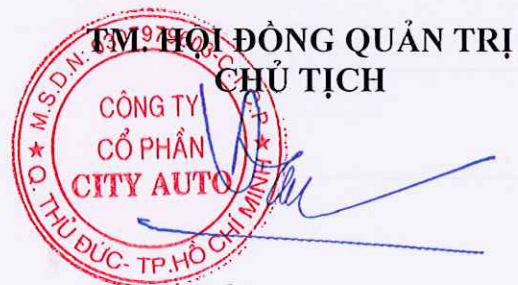 TM. HỘI ĐỒNG QUẢN TRỊ
CHỦ TỊCH
CÔNG TY
CỔ PHẦN
CITY AUTO
Q. THỦ ĐỨC- TP.HỒ CHÍ MINH